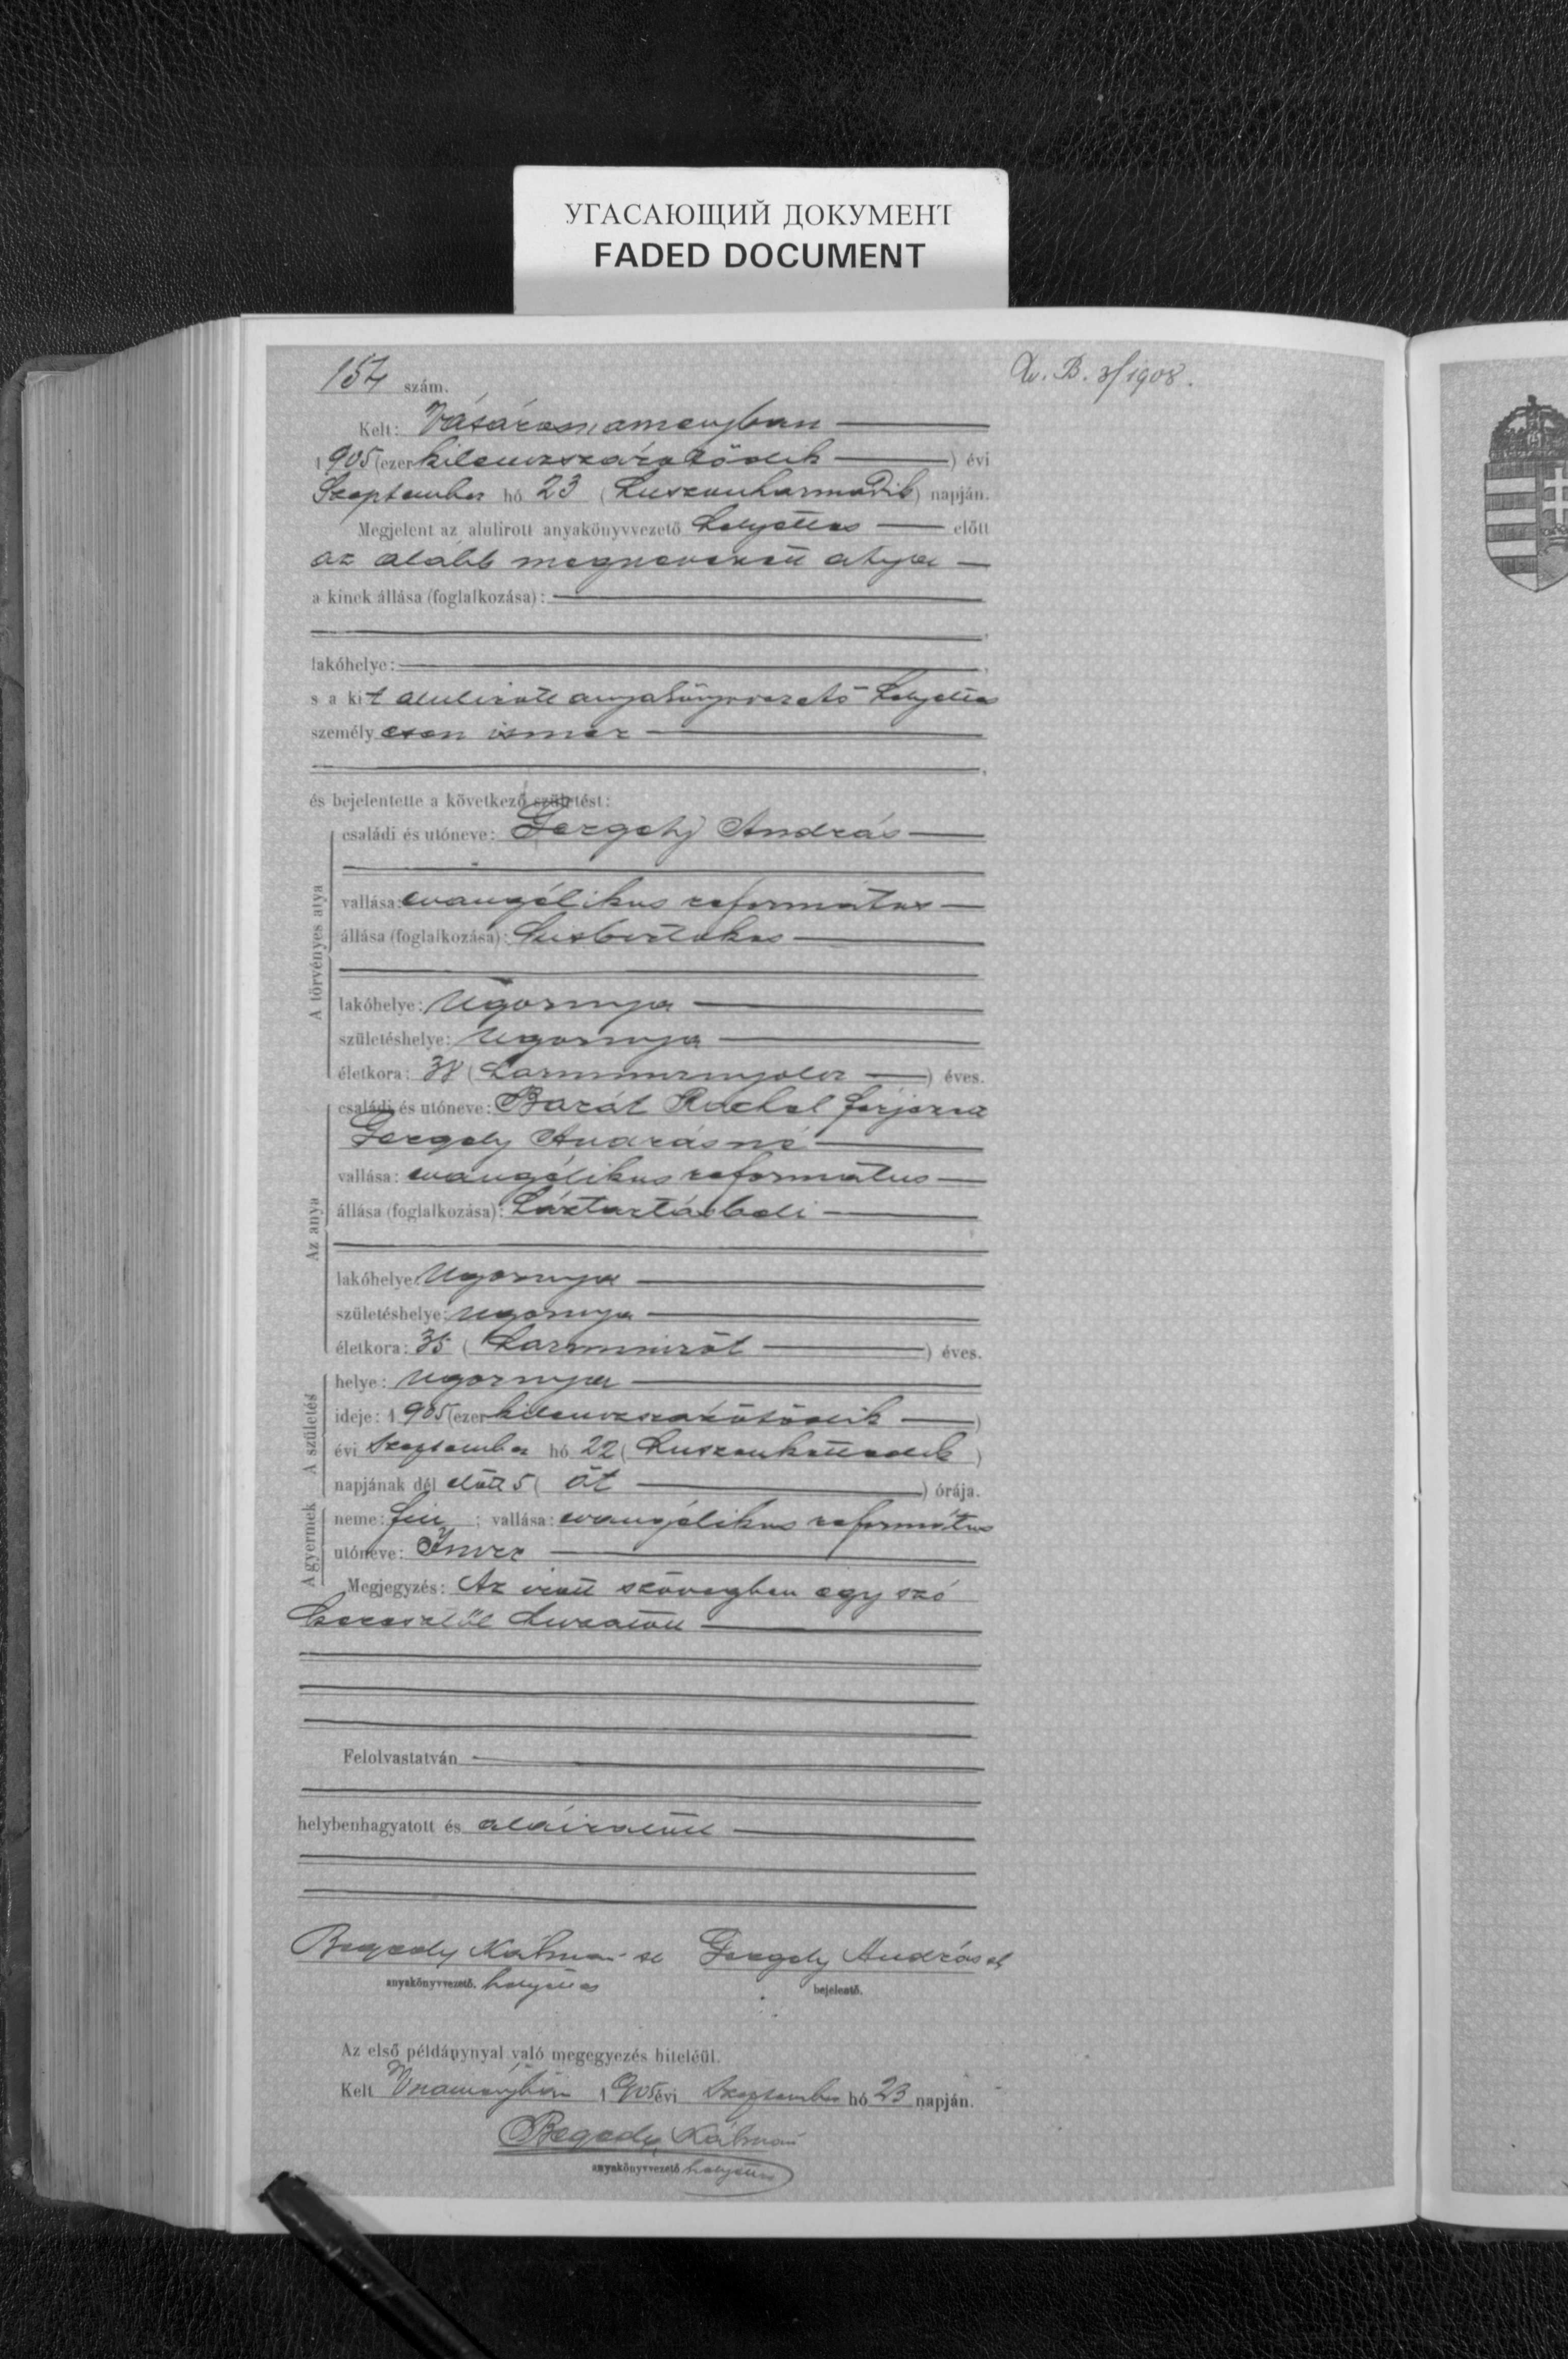 УГАСАЮЩИЙ ДОКУМЕНТ
FADED DOCUMENT
154 szám.
Kelt: Vásárosnaményban
1905 (ezer kilenczszázötödik) évi
Szeptember hó 23 (huszonharmadik) napján.
Megjelent az alulirott anyakönyvvezető helyettes előtt
az alább megnevezett atya
a kinek állása (foglalkozása):
lakóhelye:
s a kit alulirott anyakönyvvezető helyettes
személyesen ismer
és bejelentette a következő születést:
A törvényes atya
családi és utóneve: Gergely András
vallása: evangélikus református
állása (foglalkozása): kisbirtokos
lakóhelye: Ugornya
születéshelye: Ugornya
életkora: 38 (harmincznyolcz) éves.
Az anya
családi és utóneve: Barát Ráchel férjezve
Gergely Andrásné
vallása: evangélikus református
állása (foglalkozása): háztartásbeli
lakóhelye: Ugornya
születéshelye: Ugornya
életkora: 35 (harminczöt) éves.
A születés
helye: Ugornya
ideje: 1905 (ezer kilenczszázötödik)
évi Szeptember hó 22 (huszonkettedik)
napjának dél előtt 5 (öt) órája.
A gyermek
neme: fiu; vallása: evangélikus református
utóneve: Imre
Megjegyzés: Az irott szövegben egy szó
keresztül huzatott
Felolvastatván
helybenhagyatott és aláiratott
Begedy Kálmán sk Gergely András sk
anyakönyvvezető. helyettes bejelentő.
Az első példánynyal való megegyezés hiteléül.
Kelt Vnaményban 1905 évi Szeptember hó 23 napján.
Begedy Kálmán
anyakönyvvezető helyettes